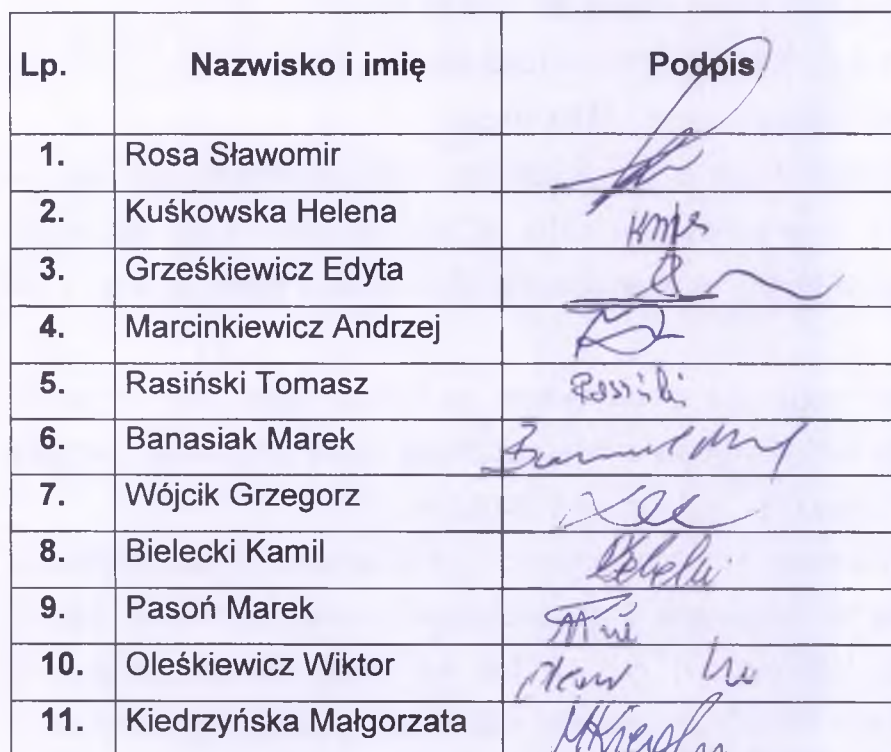 Lp. Nazwisko i imię Podpis
1. Rosa Sławomir
2. Kuśkowska Helena
3. Grześkiewicz Edyta
4. Marcinkiewicz Andrzej
5. Rasiński Tomasz Rasiński
6. Banasiak Marek
7. Wójcik Grzegorz
8. Bielecki Kamil
9. Pasoń Marek
10. Oleśkiewicz Wiktor
11. Kiedrzyńska Małgorzata